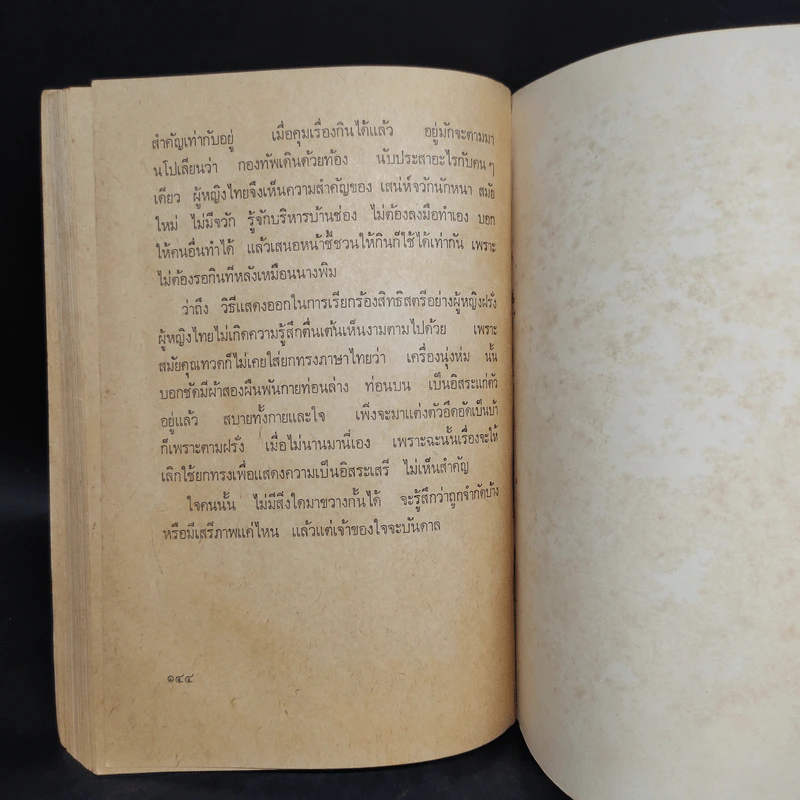 สำคัญเท่ากับอยู่ เมื่อคุมเรื่องกินได้แล้ว อยู่มักจะตามมา
นโปเลียนว่า กองทัพเดินด้วยท้อง นับประสาอะไรกับคนๆ
เดียว ผู้หญิงไทยจึงเห็นความสำคัญของ เสน่ห์จวักนักหนา สมัย
ใหม่ ไม่มีจวัก รู้จักบริหารบ้านช่อง ไม่ต้องลงมือทำเอง บอก
ให้คนอื่นทำได้ แล้วเสนอหน้าชี้ชวนให้กินก็ใช้ได้เท่ากัน เพราะ
ไม่ต้องรอกินทีหลังเหมือนนางพิม
ว่าถึง วิธีแสดงออกในการเรียกร้องสิทธิสตรีอย่างผู้หญิงฝรั่ง
ผู้หญิงไทยไม่เกิดความรู้สึกตื่นเต้นเห็นงามตามไปด้วย เพราะ
สมัยคุณทวดก็ไม่เคยใส่ยกทรงภาษาไทยว่า เครื่องนุ่งห่ม นั้น
บอกชัดมีผ้าสองผืนพันกายท่อนล่าง ท่อนบน เป็นอิสระแก่ตัว
อยู่แล้ว สบายทั้งกายและใจ เพิ่งจะมาแต่งตัวอึดอัดเป็นบ้า
ก็เพราะตามฝรั่ง เมื่อไม่นานมานี่เอง เพราะฉะนั้นเรื่องจะให้
เลิกใช้ยกทรงเพื่อแสดงความเป็นอิสระเสรี ไม่เห็นสำคัญ
ใจคนนั้น ไม่มีสิ่งใดมาขวางกั้นได้ จะรู้สึกว่าถูกจำกัดบ้าง
หรือมีเสรีภาพแค่ไหน แล้วแต่เจ้าของใจจะบันดาล
๑๔๔